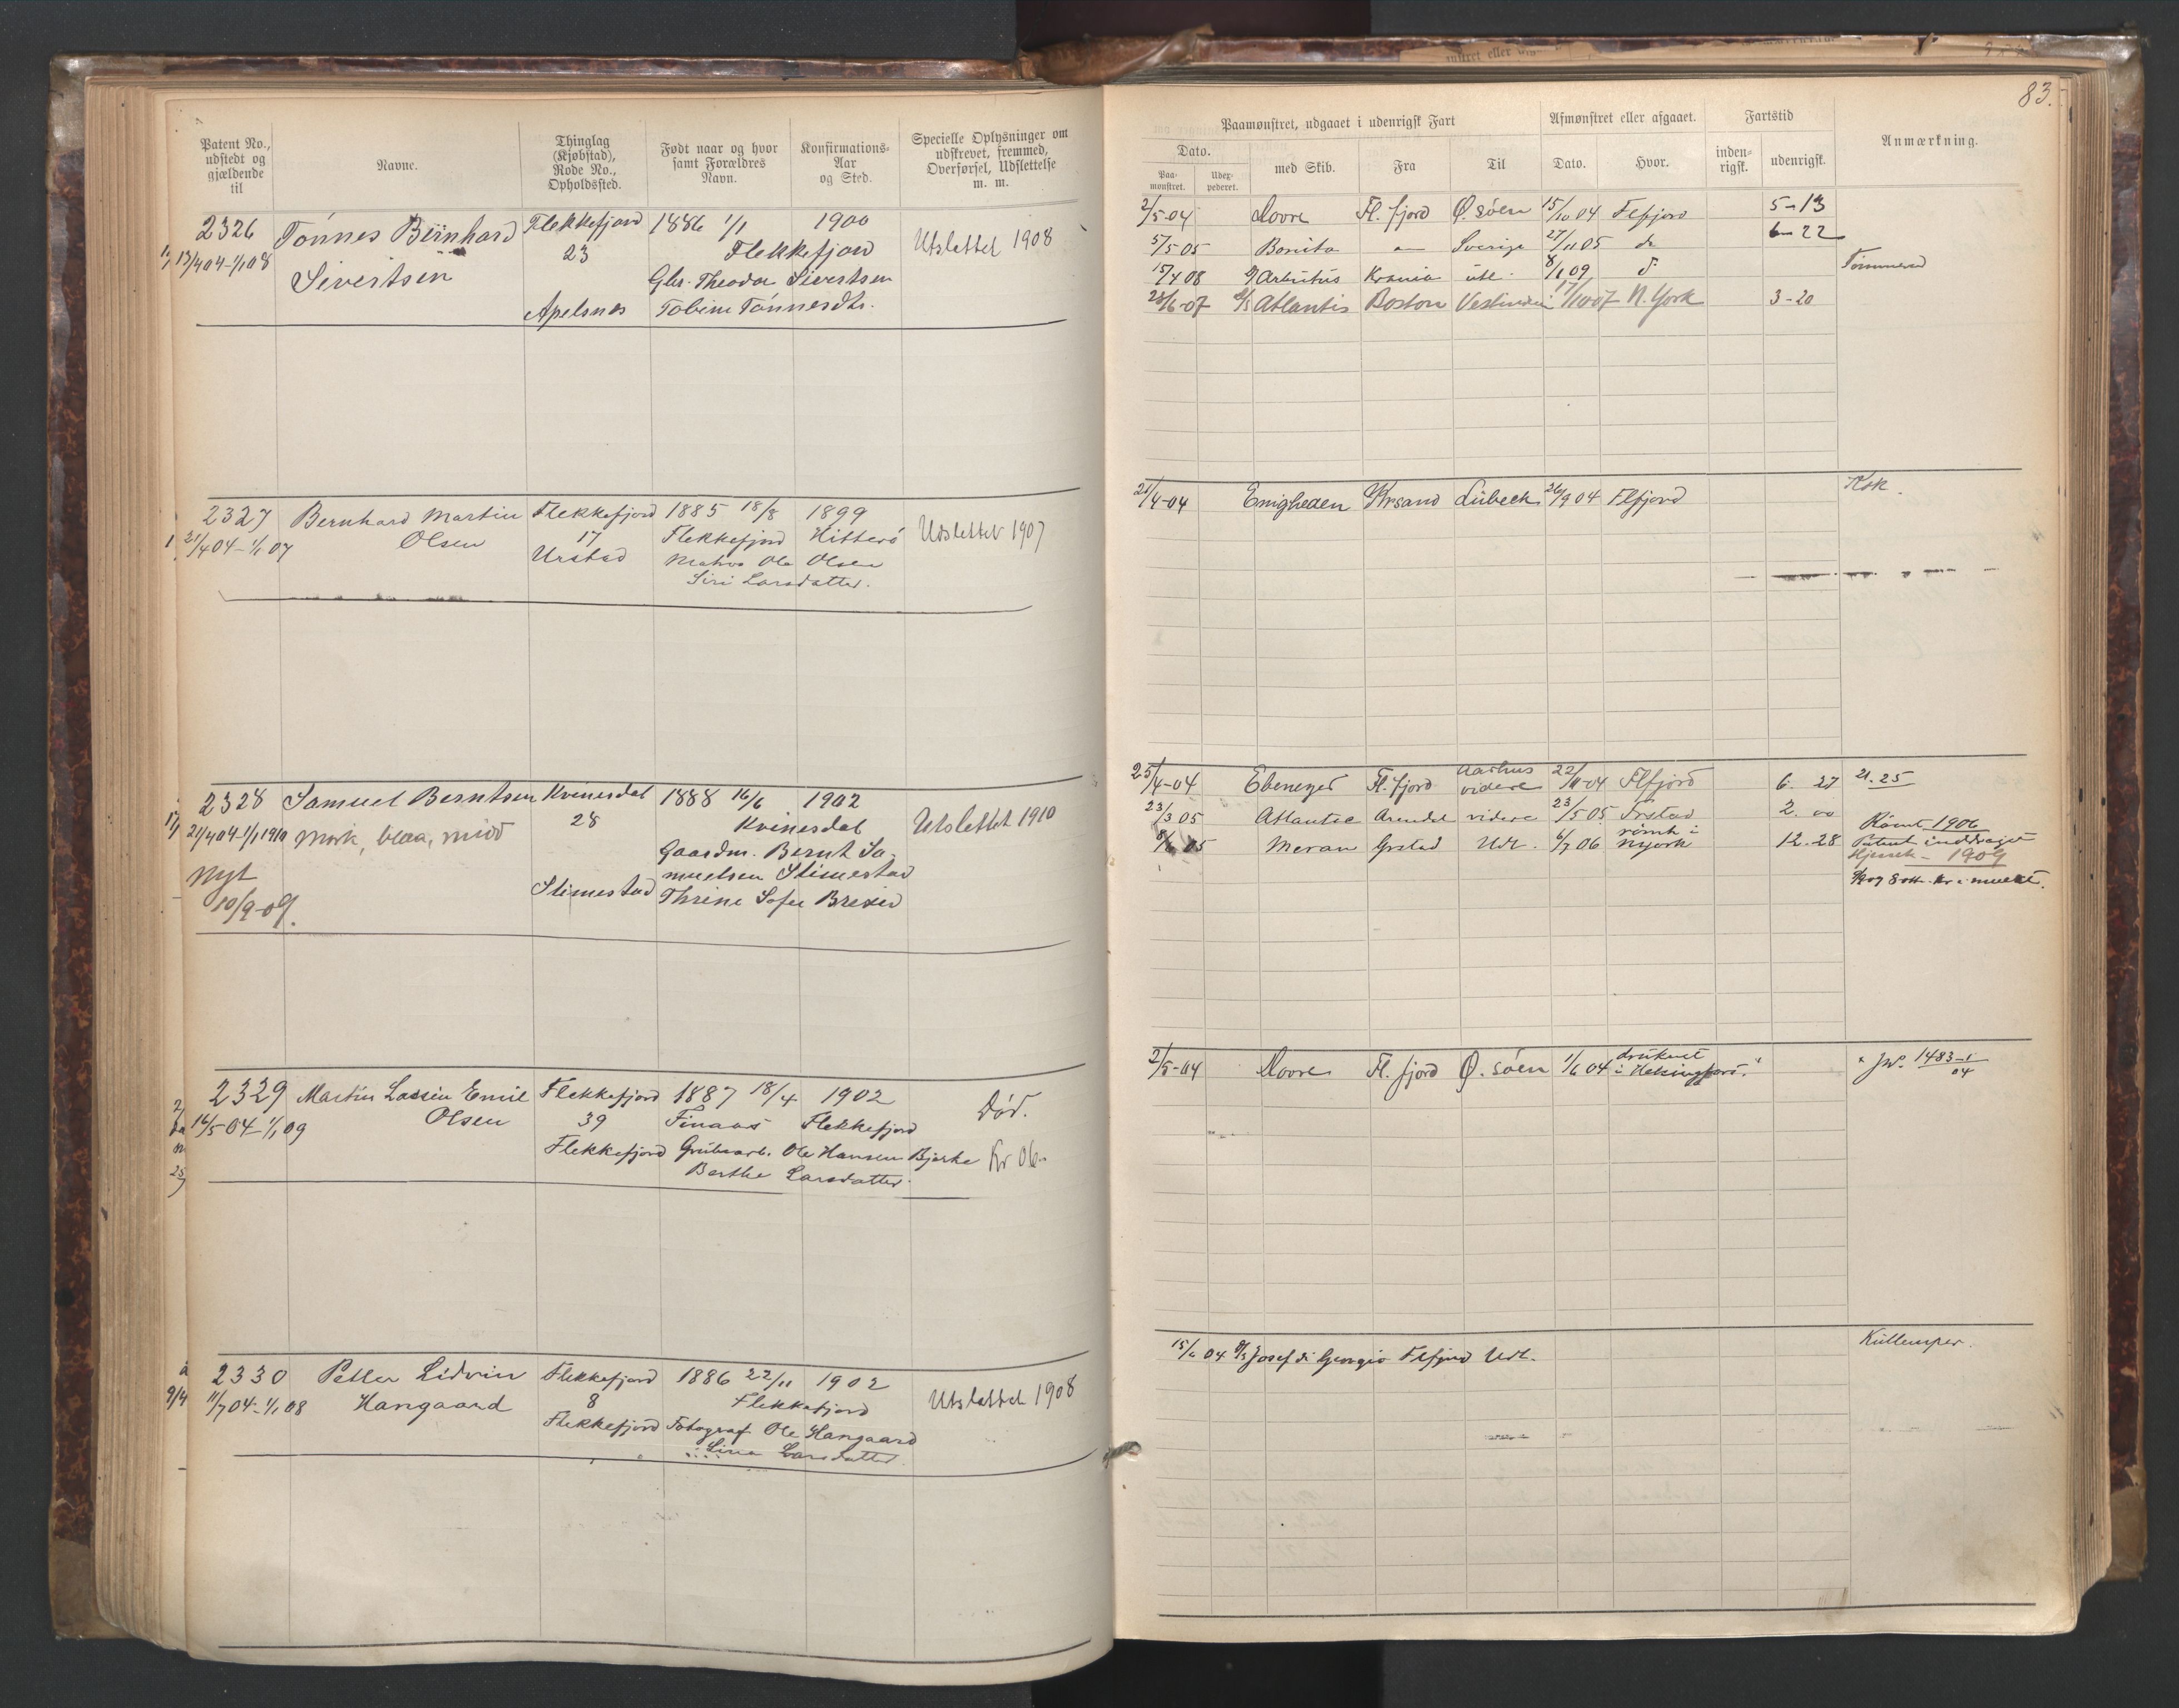 83.
Patent No., udstedt og gjældende til
Navne.
Thinglag (Kjøbstad), Rode No., Opholdssted.
Født naar og hvor samt Forældres Navn.
Konfirmations-Aar og Sted.
Specielle Oplysninger om udskrevet, fremmed, Overførsel, Udslettelse m. m.
Paamønstret, udgaaet i udenrigsk Fart
Afmønstret eller afgaaet.
Fartstid
Anmærkning.
Dato.
Paamønstret.
Udexpederet.
med Skib.
Fra
Til
Dato.
Hvor.
indenrigsk.
udenrigsk.
2326 Tönnes Bernhard Flekkefjord 1886 1/1 1900
13/4 04-1/1 08 Sivertsen 23 Flekkefjord Utslettet 1908
Gbr. Theodor Sivertsen
Apelsnes Tobine Tönnesdtr.
2/5-04 Moore Fl.fjord Ø.söen 15/10 04 Flfjord 5-13
5/5 05 Bonita " Sverige 27/11 05 do 6-22
15/4 08 Arbutus Krania utl. 8/1 09 Tømmerm
28/6-07 Atlantis Boston Vestindien 17/10 07 N.York 3-20
2327 Bernhard Martin Flekkefjord 1885 18/8 1899
21/4 04-1/1 07 Olsen 17 Flekkefjord Hitterö Udslettet 1907
Urstad Matros Ole Olsen
Siri Larsdatter.
21/4-04 Enigheden Krsand Lübeck 26/9 04 Flfjord Kok
2328 Samuel Berntsen Kvinesdal 1888 16/6 1902
21/4 04-1/1 1910 Mørk, blaa, midd 28 Kvinesdal Utslettet 1910
Gaardm. Bernt Sa-
Nyt muelsen Stimestad
10/9-09. Stimestad Thrine Sofie
25/4-04 Ebenezer Fl.fjord Aarhus videre 22/11-04 Flfjord 6. 27 21.25
23/3 05 Atlantic Arendal videre 23/5 05 Frstad 2. 00 Rømt 1906
Meran Grstad Udl. 6/7 06 rømt i Nyork 12-28 Patent inddraget
1909
2329 Martin Lassin Emil Flekkefjord 1887 18/4 1902
16/5-04-1/1 09 Olsen 39 Finaas Flekkefjord Død.
Flekkefjord Grubearb. Ole Hansen Bjerke Kr 06
Berthe Larsdatter.
2/5-04 Moore Fl.fjord Ø.söen 1/6 04 druknet i Helsingfors. JNo. 1483-1/04
2330 Petter Lidvin Flekkefjord 1886 22/11 1902
11/7 04-1/1 08 Hangaard 8 Flekkefjord Utslettet 1908
Flekkefjord Fotograf Ole Hangaard
Sina Larsdatter.
04 Josef di Georgio Flfjord Udl. Kullemper.